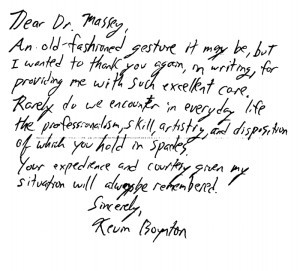 Dear Dr. Massey,
An old-fashioned gesture it may be, but
I wanted to thank you again, in writing, for
providing me with such excellent care.
Rarely do we encounter in everyday life
the professionalism, skill, artistry, and disposition
of which you hold in spades.
Your expedience and courtesy given my
situation will always be remembered.
Sincerely,
Kevin Boynton